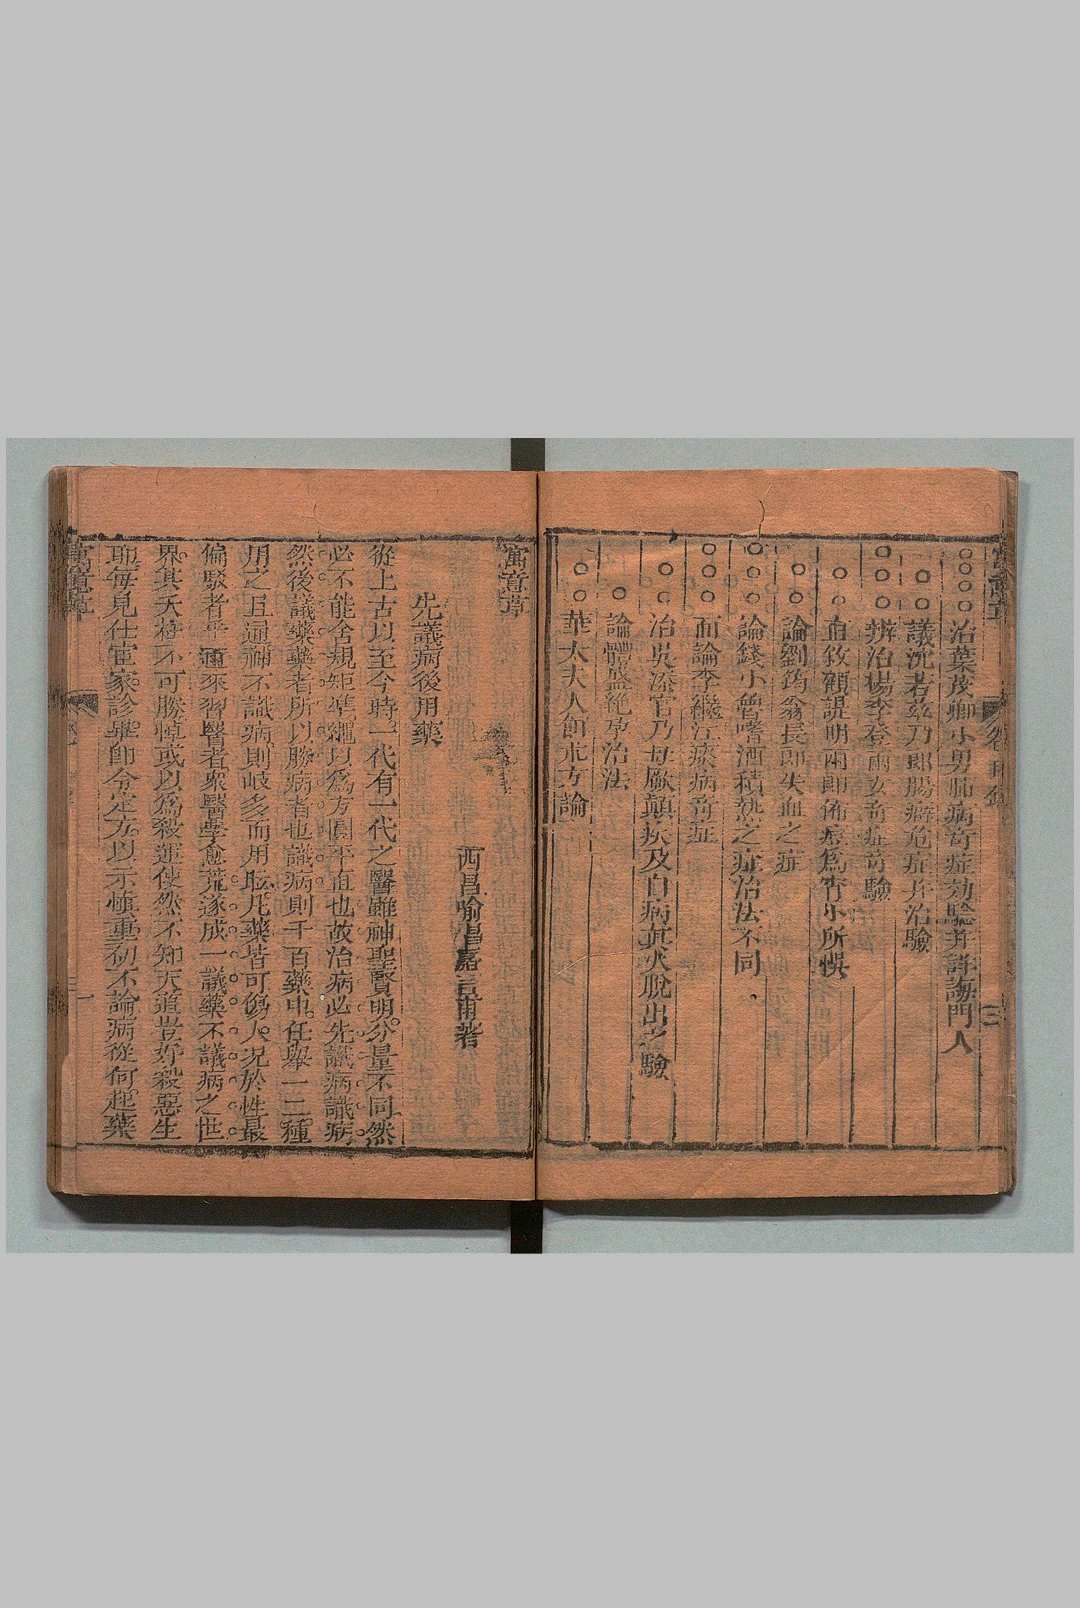 治葉茂卿小男肺病奇症効驗并詳誨門人
議沈若茲乃郎腸澼危症并治驗
辨治楊季登兩女奇症奇驗
直敘顧諟明兩郎佈痘爲宵小所悞
論劉筠翁長郎失血之症
論錢小魯嗜酒積熱之症治法不同
面論李繼江痰病奇症
治吳添官乃母厥巔疾及自病眞火脫出之驗
論體盛絶孕治法
華太夫人餌朮方論
寓意草
西昌喻昌嘉言甫著
先議病後用藥
從上古以至今時一代有一代之醫雖神聖賢明分量不同然
必不能舍規矩準繩以爲方圓平直也故治病必先識病識病
然後議藥藥者所以勝病者也識病則千百藥中任舉一二種
用之且通神不識病則岐多而用眩凡藥皆可傷人况於性最
偏駁者乎邇來習醫者衆醫學愈荒遂成一議藥不議病之世
界其夭枉不可勝悼或以爲殺運使然不知天道豈好殺惡生
耶每見仕宦家診畢即令定方以示慎重初不論病從何起藥
寓意草